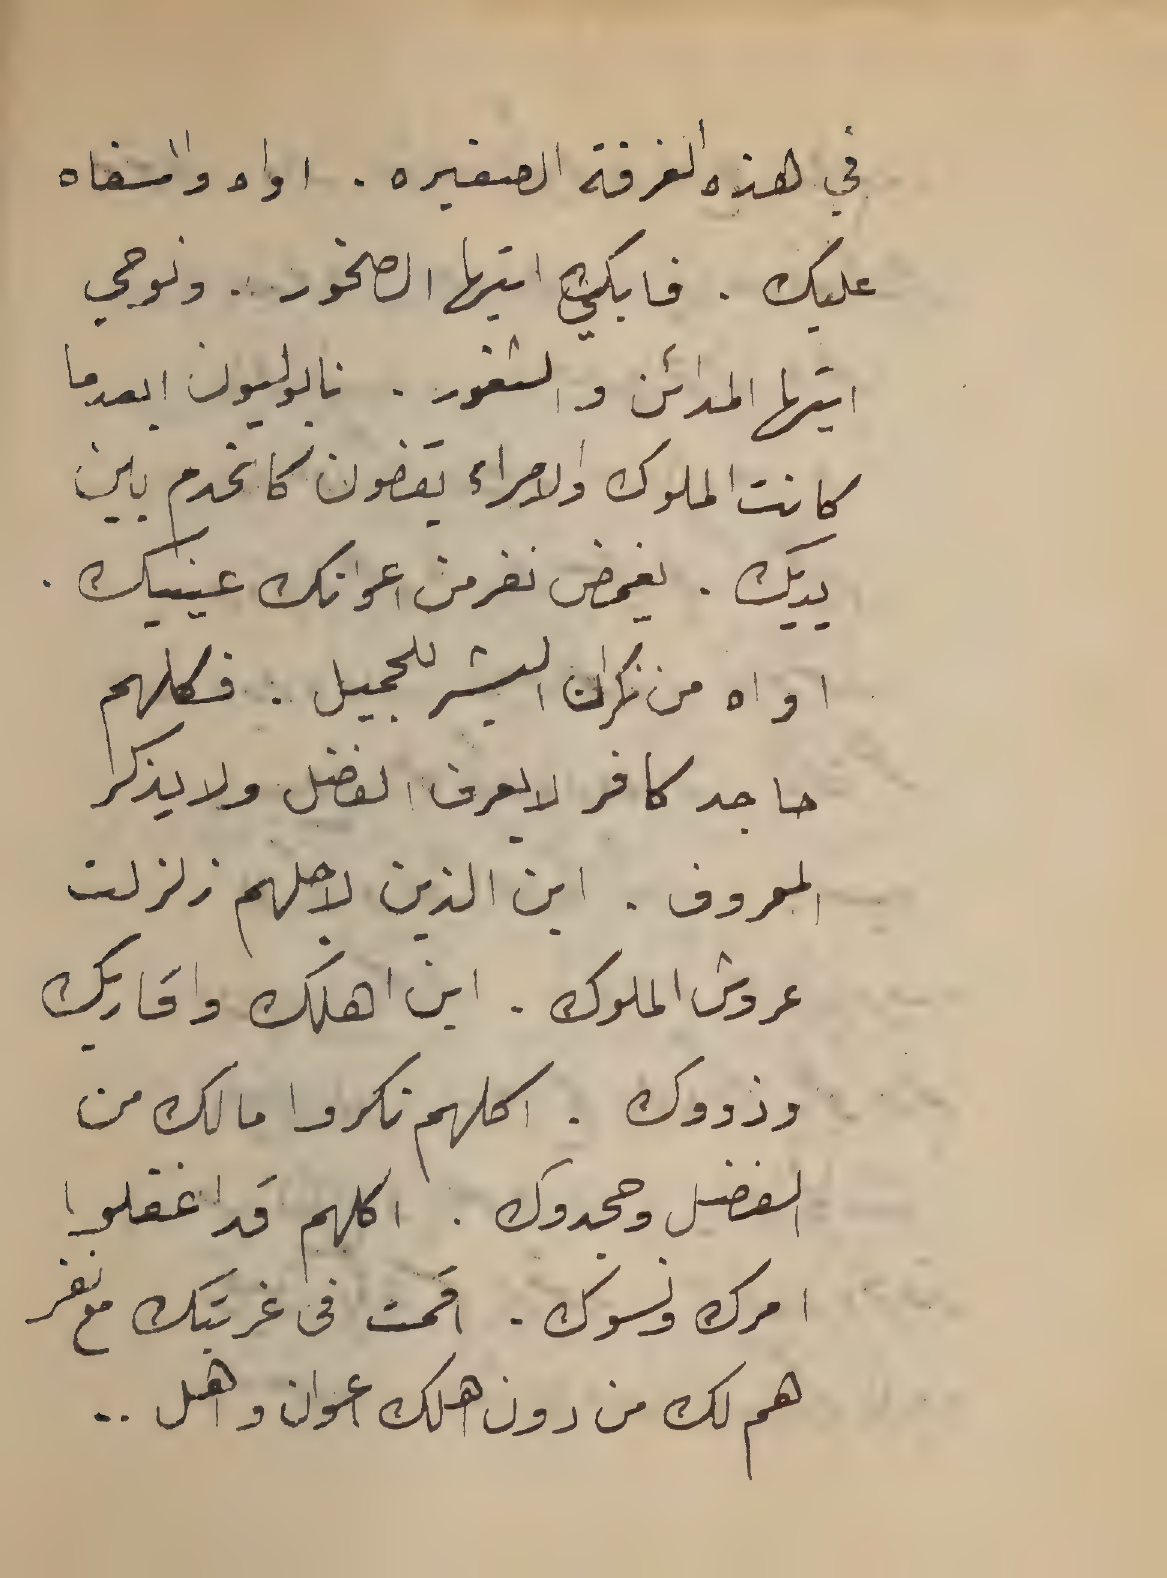 في هذه الغرفة الصغيره . اواه وا اسفاه
عليك . فابكي ايتها الصخور . ونوحي
ايتها المدائن والثغور . نابوليون ابعدما
كانت الملوك والامراء يقفون كالخدم بين
يديك . يغمض نفر من اعوانك عينيك .
اواه من نكران البشر للجميل . فكلهم
جاحد كافر لا يعرف الفضل ولا يذكر
المعروف . اين الذين لاجلهم زلزلت
عروش الملوك . اين اهلك واقاربك
وذووك . اكلهم نكروا مالك من
الفضل وجحدوك . اكلهم قد اغفلوا
امرك ونسوك . اقمت في غربتك مع نفر
هم لك من دون اهلك اعوان واهل ..